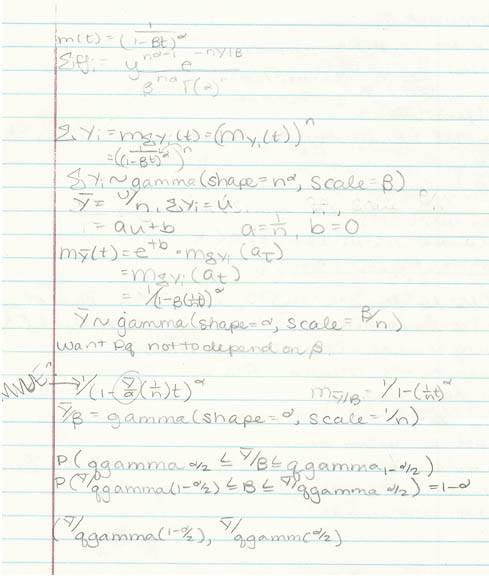 m(t) = (1/(1-βt))^α
Σfi = y^(nα-1) e^(-ny/β) / β^(nα) Γ(α)
Σyi = mΣyi(t) = (myi(t))^n
= ((1/(1-βt)^α)^n
ΣYi ~ gamma(shape = nα, scale = β)
ȳ = U/n, Σyi = u
= au+b a = 1/n, b = 0
mȳ(t) = e^tb · mΣyi(at)
= mΣyi(at)
= 1/(1-β(1/n)t)^α
Ȳ ~ gamma(shape = α, scale = β/n)
want pq not to depend on β
→ 1/(1-(Y/α)(1/n)t)^α mȲ/β = 1/1-(1/n t)^α
Ȳ/β = gamma(shape = α, scale = 1/n)
P(qgamma α/2 ≤ Ȳ/β ≤ qgamma 1-α/2)
P(Ȳ/qgamma(1-α/2) ≤ β ≤ Ȳ/qgamma α/2) = 1-α
(Ȳ/qgamma(1-α/2), Ȳ/qgamm(α/2)